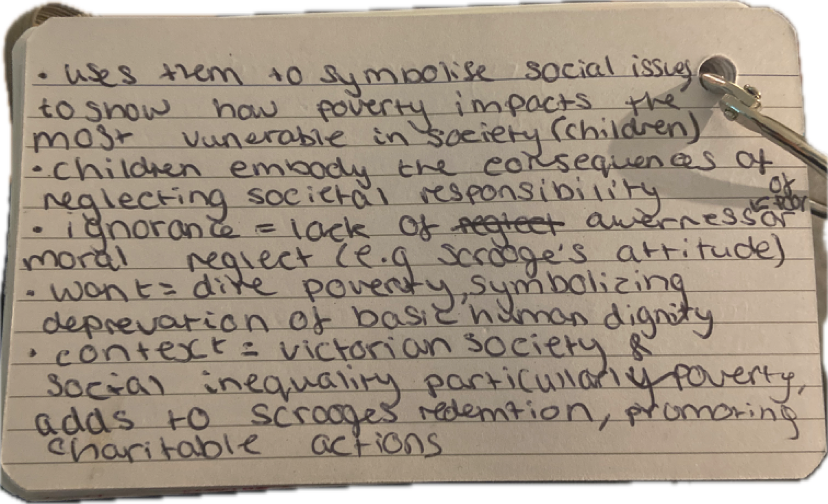 • uses them to symbolise social issues
to show how poverty impacts the
most vunerable in society (children)
• children embody the consequences of
neglecting societal responsibility
• ignorance = lack of neglect awerness of or
moral neglect (e.g scrooge's attitude)
• want = dire poverty, symbolizing
deprevation of basic human dignity
• context = victorian society &
social inequality particullarly poverty,
adds to scrooges redemtion, promoting
charitable actions